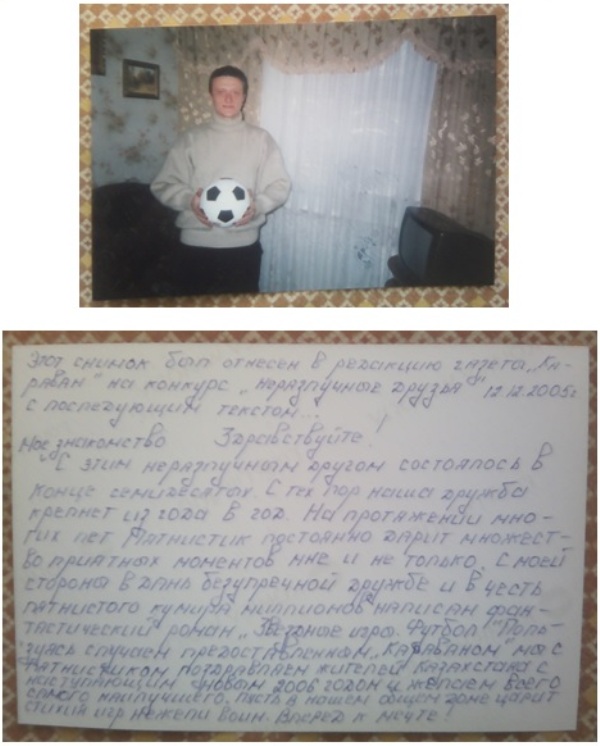 Этот снимок был отнесен в редакцию газета „Ка-
раван" на конкурс „неразлучные друзья" 12.12.2005г.
с последующим текстом...
Здравствуйте!
Мое знакомство
"С этим неразлучным другом состоялось в
конце семидесятых. С тех пор наша дружба
крепнет из года в год. На протяжении мно-
гих лет Пятнистик постоянно дарит множест-
во приятных моментов мне и не только. С моей
стороны в дань безупречной дружбе и в честь
пятнистого кумира миллионов написан фан-
тастический роман „Звездные игры. Футбол." Поль-
зуясь случаем предоставленным „Караваном" мы с
Пятнистиком поздравляем жителей Казахстана с
наступающим Новым 2006 годом и желаем всего
самого наилучшего. Пусть в нашем общем доме царит
стихия игр нежели войн. Вперед к мечте!